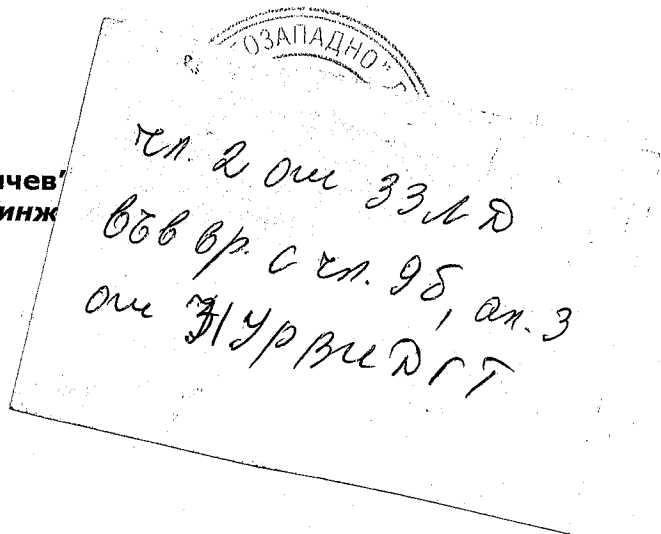 ОЗАПАДНО"
чев"
инж
чл. 2 от ЗЗЛД
във вр. с чл. 9б, ал. 3
от НУРВИДГТ